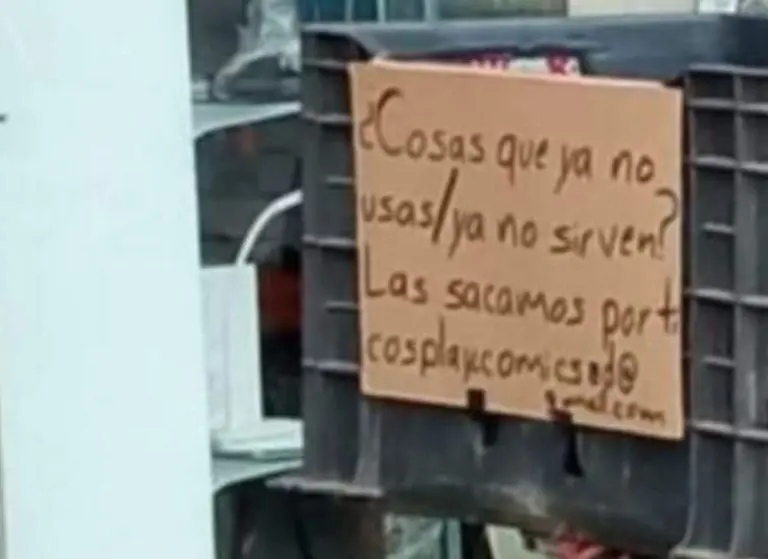 ¿Cosas que ya no
usas/ya no sirven?
Las sacamos por ti
gmail.com